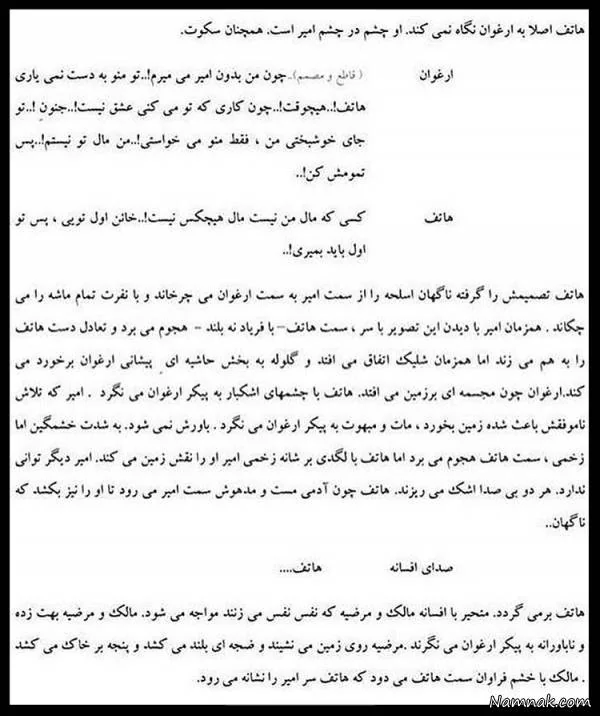 هاتف اصلا به ارغوان نگاه نمی کند. او چشم در چشم امیر است. همچنان سکوت.
ارغوان (قاطع و مصمم)..چون من بدون امیر می میرم!..تو منو به دست نمی یاری
هاتف!..هیچوقت!..چون کاری که تو می کنی عشق نیست!..جنونِ !..تو
جای خوشبختی من ، فقط منو می خواستی!..من مال تو نیستم!..پس
تمومش کن!..
هاتف کسی که مال من نیست مال هیچکس نیست!..خائن اول تویی ، پس تو
اول باید بمیری!..
هاتف تصمیمش را گرفته ناگهان اسلحه را از سمت امیر به سمت ارغوان می چرخاند و با نفرت تمام ماشه را می
چکاند . همزمان امیر با دیدن این تصویر با سر ، سمت هاتف– با فریاد نه بلند – هجوم می برد و تعادل دست هاتف
را به هم می زند اما همزمان شلیک اتفاق می افتد و گلوله به بخش حاشیه ای ِ پیشانی ارغوان برخورد می
کند.ارغوان چون مجسمه ای برزمین می افتد. هاتف با چشمهای اشکبار به پیکر ارغوان می نگرد . امیر که تلاش
ناموفقش باعث شده زمین بخورد ، مات و مبهوت به پیکر ارغوان می نگرد . باورش نمی شود. به شدت خشمگین اما
زخمی ، سمت هاتف هجوم می برد اما هاتف با لگدی بر شانه زخمی امیر او را نقش زمین می کند. امیر دیگر توانی
ندارد. هر دو بی صدا اشک می ریزند. هاتف چون آدمی مست و مدهوش سمت امیر می رود تا او را نیز بکشد که
ناگهان..
صدای افسانه هاتف....
هاتف برمی گردد. متحیر با افسانه مالک و مرضیه که نفس نفس می زنند مواجه می شود. مالک و مرضیه بهت زده
و ناباورانه به پیکر ارغوان می نگرند .مرضیه روی زمین می نشیند و ضجه ای بلند می کشد و پنجه بر خاک می کشد
. مالک با خشم فراوان سمت هاتف می دود که هاتف سر امیر را نشانه می رود.
Namnak.com